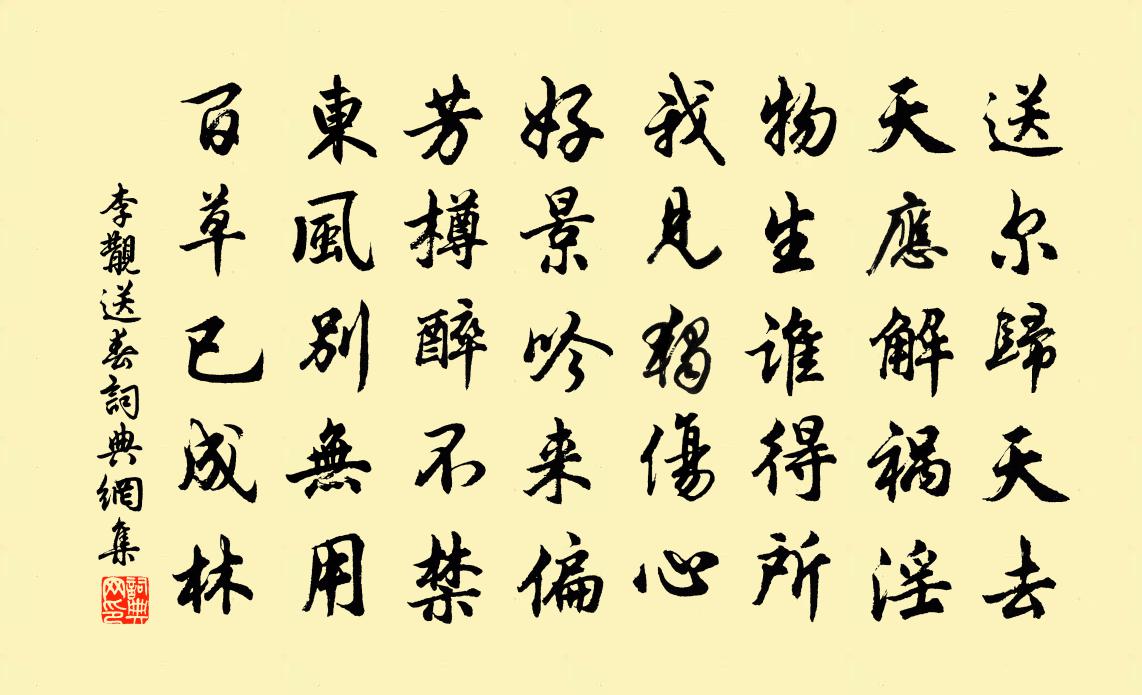 送尔歸天去
天應解禍淫
物生誰得所
我見獨傷心
好景吟来偏
芳樽醉不禁
東風別無用
百草已成林
李覯送春詞典網集
詞典網印